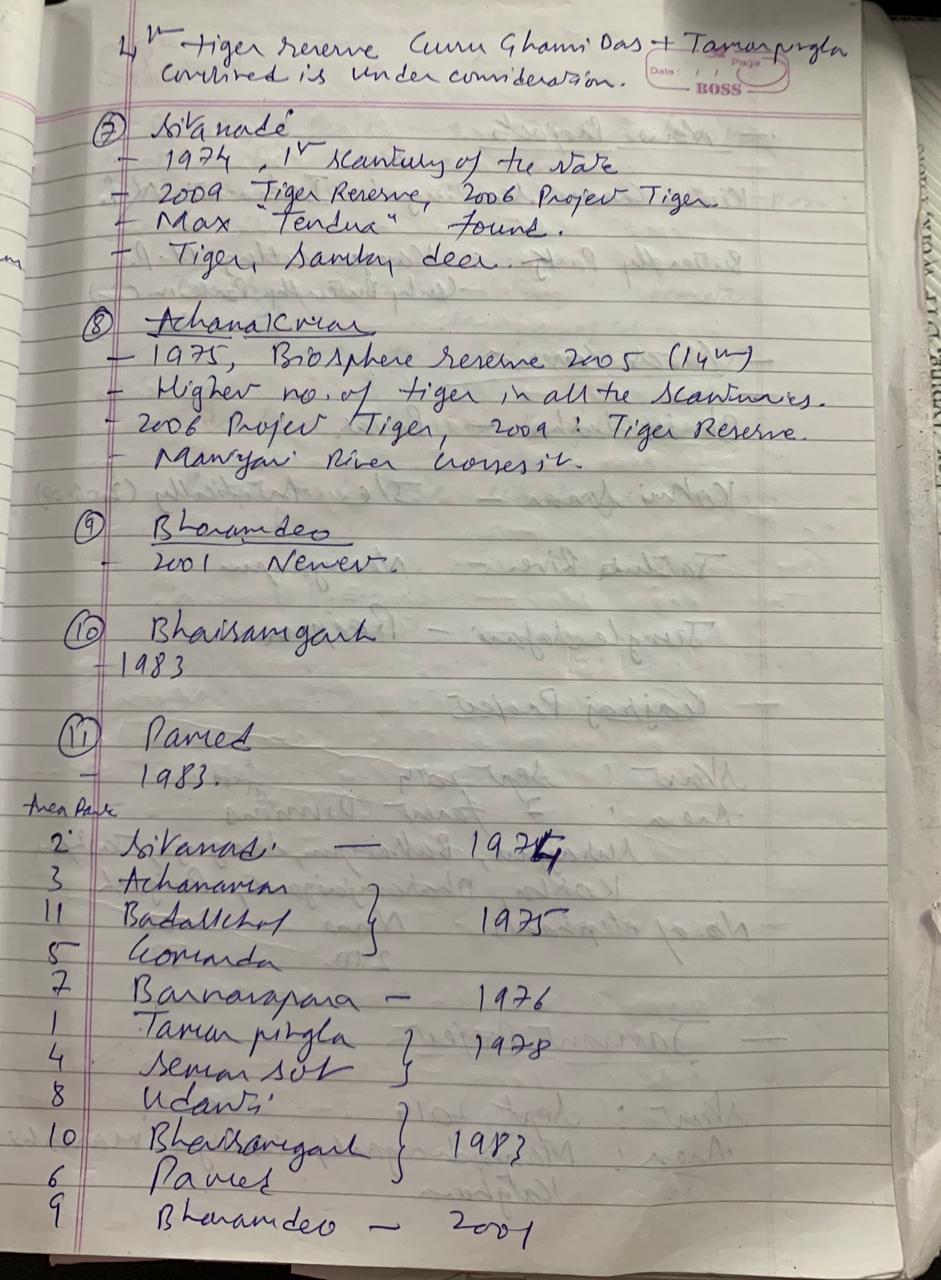 4th tiger reserve Guru Ghasi Das + Tamorpingla
combined is under consideration.
Date: / / Page
BOSS
⑦ Sitanadi
- 1974, 1st scantury of the state
- 2009 Tiger Reserve, 2006 Project Tiger.
- Max "Tendua" found.
- Tiger, Sambar, deer.
⑧ Achanakmar
- 1975, Biosphere reserve 2005 (14th)
- Higher no. of tiger in all the scanturies.
- 2006 Project Tiger, 2009: Tiger Reserve.
- Maniyari River crosses it.
⑨ Bhoramdeo
- 2001 Newest.
⑩ Bhairamgarh
- 1983
⑪ Pamed
- 1983.
Area Rank
2 Sitanadi — 1974
3 Achanakmar
11 Badalkhol } 1975
5 Gomarda
7 Barnawapara - 1976
1 Tamor pingla } 1978
4 Semarsot
8 Udanti
10 Bhairamgarh } 1983
6 Pamed
9 Bhoramdeo - 2001